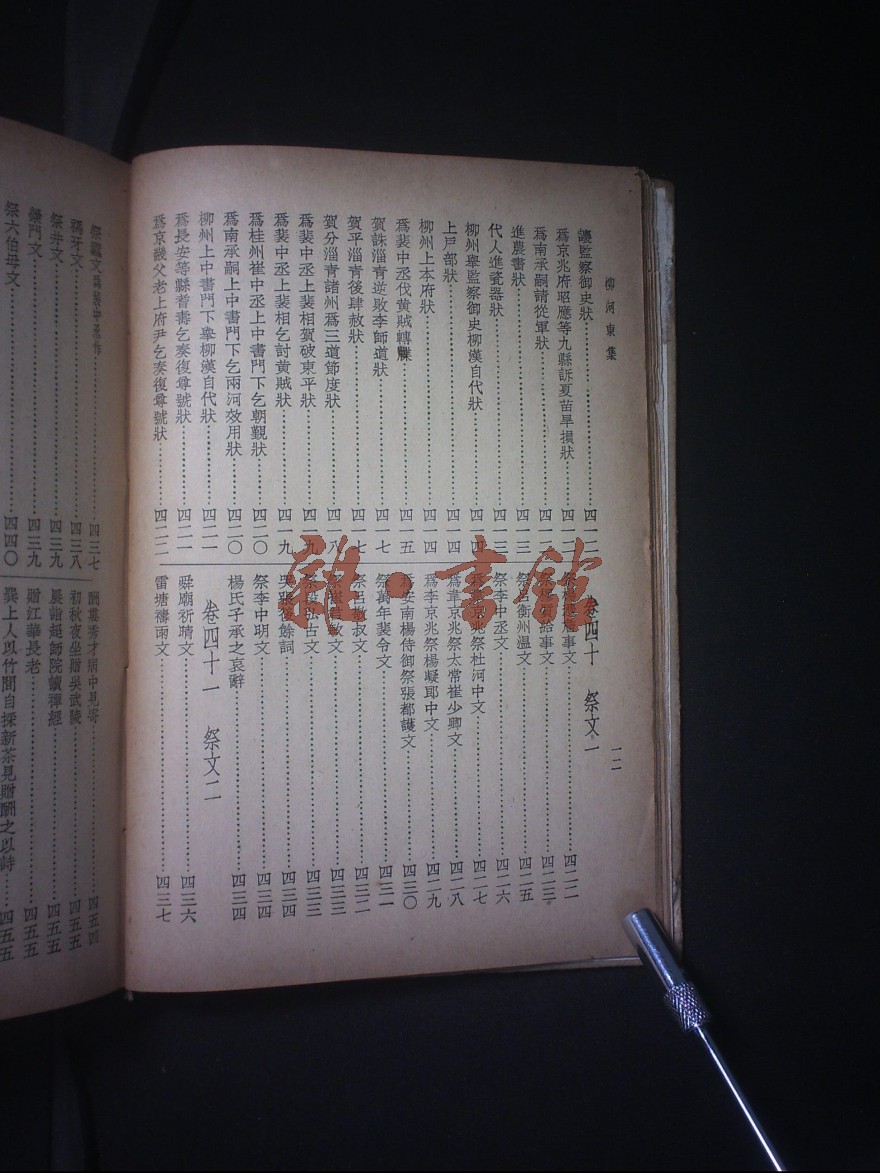 柳河東集
一二
讓監察御史狀……四一二
爲京兆府昭應等九縣訴夏苗旱損狀……四一二
爲南承嗣請從軍狀……四一二
進農書狀……四一三
代人進瓷器狀……四一三
柳州舉監察御史柳漢自代狀……四一四
上戶部狀……四一四
柳州上本府狀……四一四
爲裴中丞伐黃賊轉牒……四一五
賀誅淄青逆敗李師道狀……四一七
賀平淄青後肆赦狀……四一七
賀分淄青諸州爲三道節度狀……四一八
爲裴中丞上裴相賀破東平狀……四一九
爲裴中丞上裴相乞討黃賊狀……四一九
爲桂州崔中丞上中書門下乞朝覲狀……四二〇
爲南承嗣上中書門下乞兩河效用狀……四二〇
柳州上中書門下舉柳漢自代狀……四二一
爲長安等縣耆壽乞奏復尊號狀……四二一
爲京畿父老上府尹乞奏復尊號狀……四二二
卷四十 祭文一
文……四二二
事文……四二三
祭呂衡州溫文……四二五
祭李中丞文……四二六
爲京兆祭杜河中文……四二七
爲韋京兆祭太常崔少卿文……四二八
爲李京兆祭楊凝郎中文……四二九
爲安南楊侍御祭張都護文……四三〇
祭萬年裴令文……四三一
祭呂敬叔文……四三二
祭崔君敏文……四三三
祭段弘古文……四三三
哭張後餘詞……四三四
祭李中明文……四三四
楊氏子承之哀辭……四三四
卷四十一 祭文二
舜廟祈晴文……四三六
雷塘禱雨文……四三七
祭纛文……四三七
禡牙文……四三八
祭井文……四三九
禜門文……四三九
祭六伯母文……四四〇
酬婁秀才病中見寄……四五四
初秋夜坐贈吳武陵……四五五
晨詣超師院讀禪經……四五五
贈江華長老……四五五
巽上人以竹間自採新茶見贈酬之以詩……四五五
雜·書館